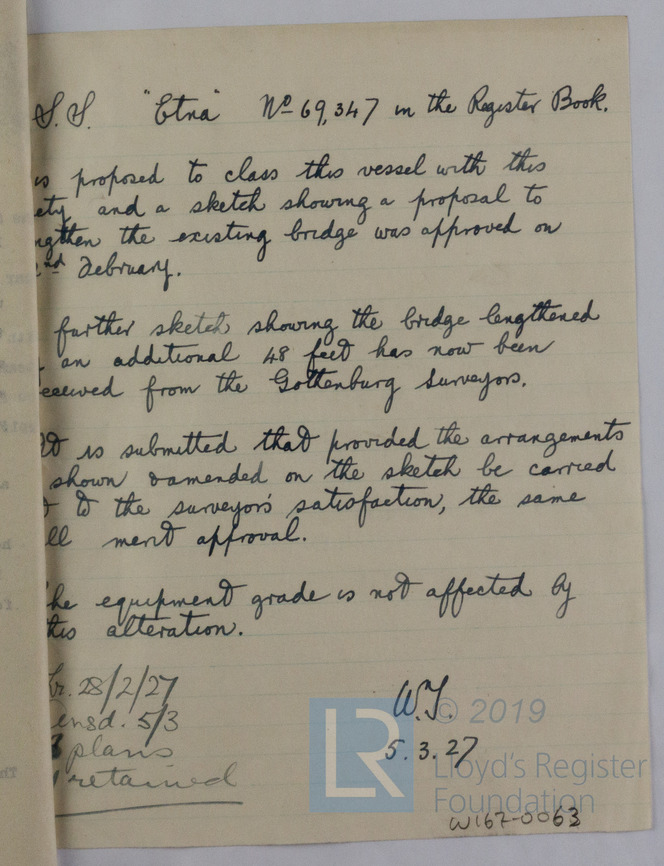 S.S. "Etna" No 69,347 in the Register Book.
is proposed to class this vessel with this
ety, and a sketch showing a proposal to
ngthen the existing bridge was approved on
2nd February.
further sketch showing the bridge lengthened
an additional 48 feet has now been
eceived from the Gothenburg Surveyors.
It is submitted that provided the arrangements
shown & amended on the sketch be carried
t to the surveyors' satisfaction, the same
ll merit approval.
he equipment grade is not affected by
this alteration.
Lr. 28/2/27
ensd. 5/3
3 plans
1 retained
W.T.
5.3.27
© 2019
LR
Lloyd's Register
Foundation
W167-0063